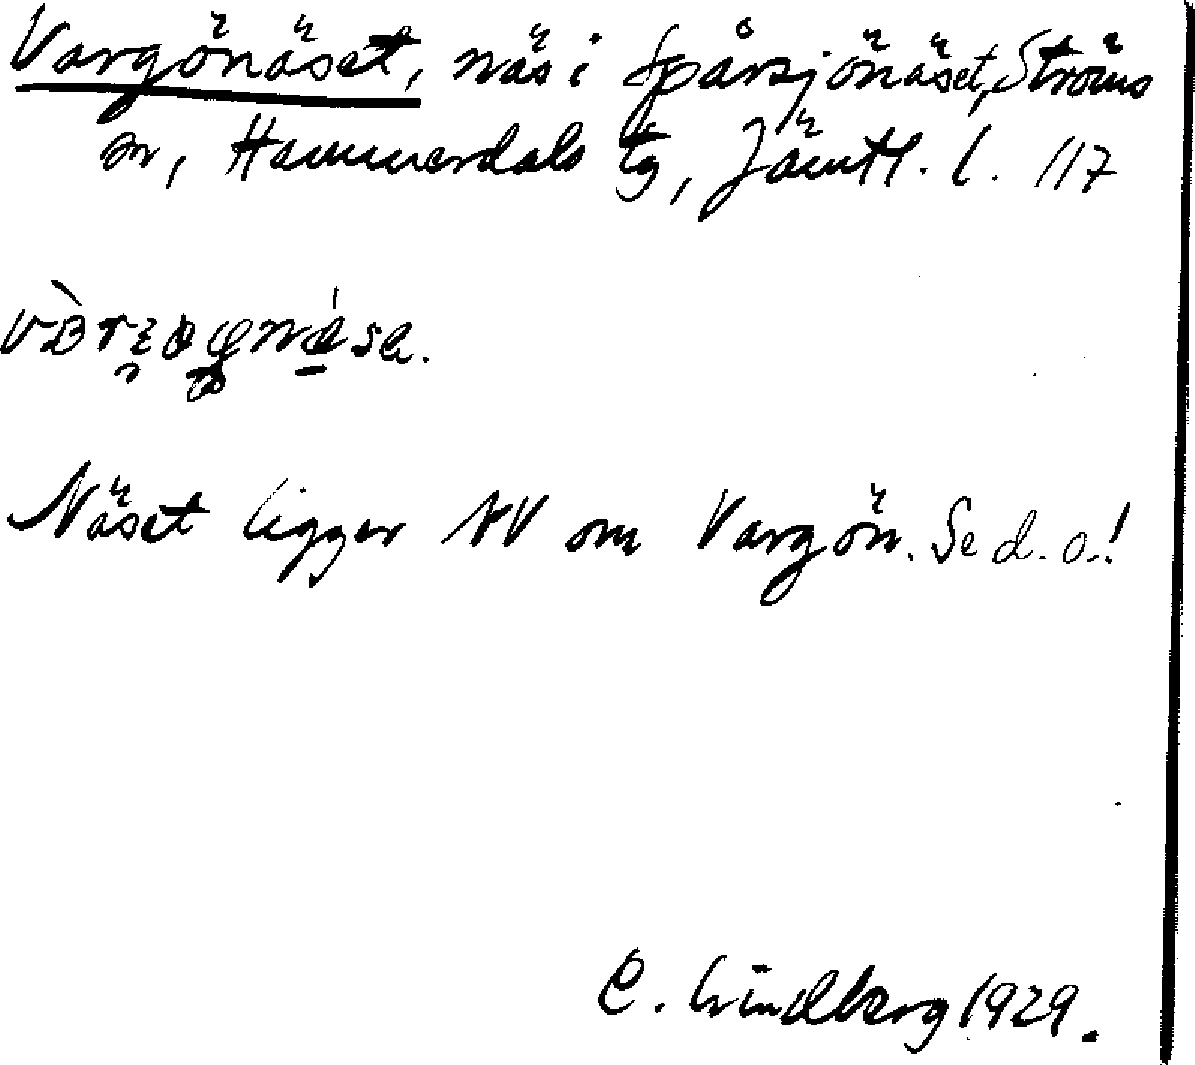 Vargönäset, näs i Spårsjönäset, Ströms
sn, Hammerdals tg, Jämtl. l. 117
Näset ligger NV om Vargön. Se d. o.!
C. Lindberg 1929.